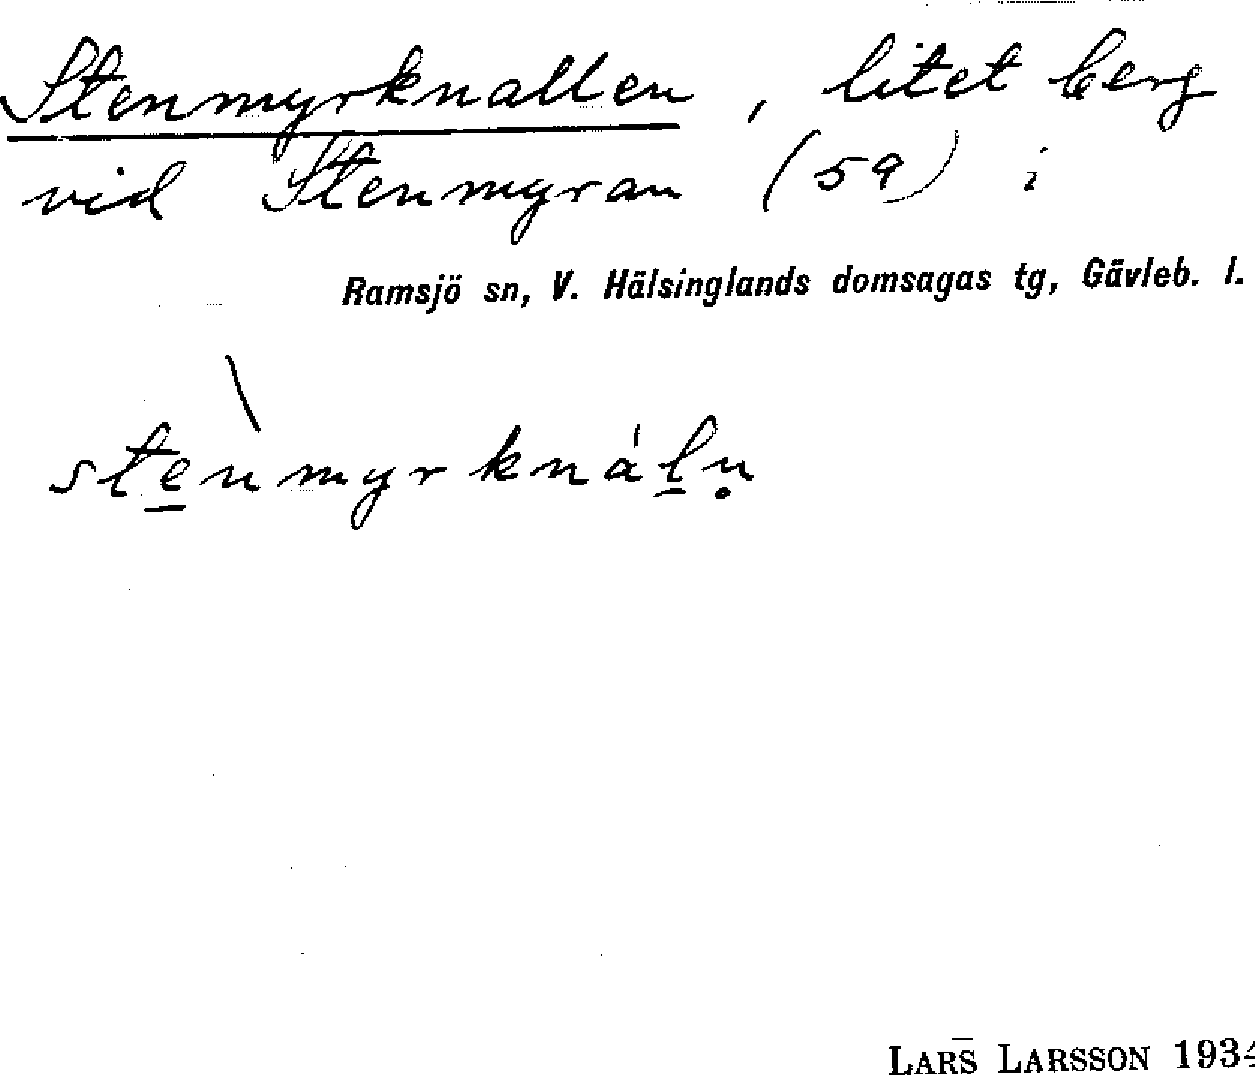 Stenmyrknallen, litet berg
vid Stenmyran (59) i
Ramsjö sn, V. Hälsinglands domsagas tg, Gävleb. l.
stè̠nmyrkná̀l̠ṇ
LARS LARSSON 1934